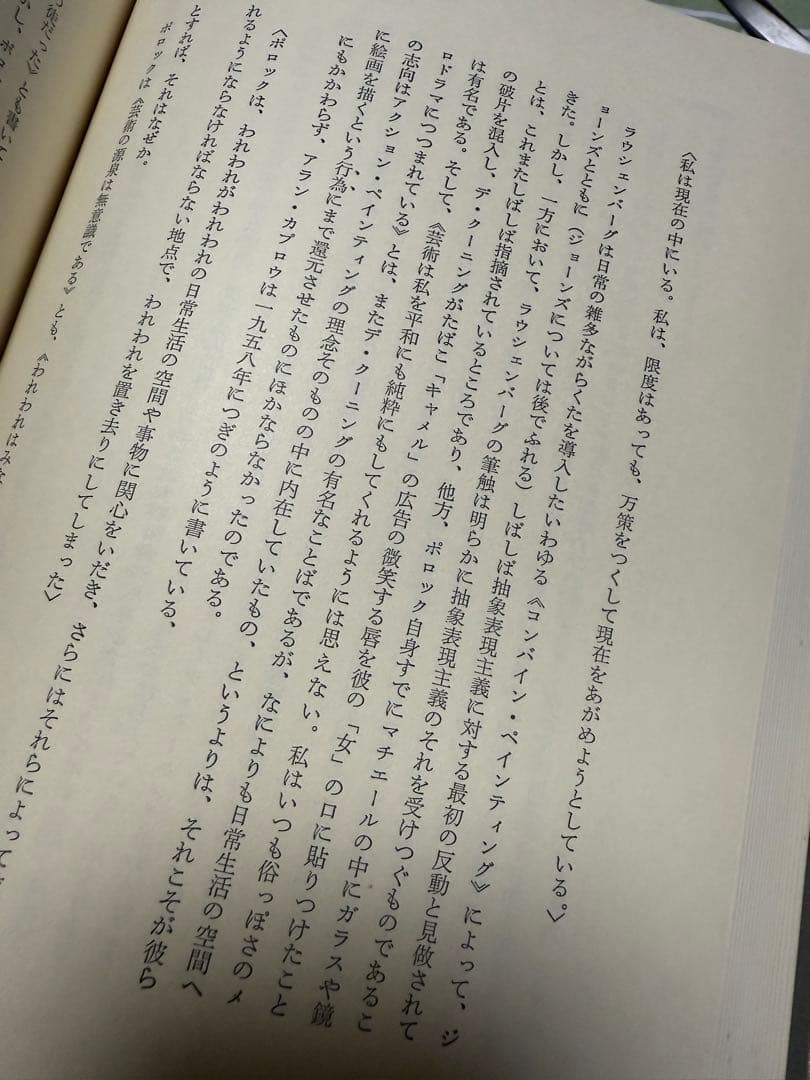 〈私は現在の中にいる。私は、限度はあっても、万策をつくして現在をあがめようとしている。〉
ラウシェンバーグは日常の雑多ながらくたを導入したいわゆる《コンバイン・ペインティング》によって、ジ
ョーンズとともに（ジョーンズについては後でふれる）しばしば抽象表現主義に対する最初の反動と見做されて
きた。しかし、一方において、ラウシェンバーグの筆触は明らかに抽象表現主義のそれを受けつぐものであるこ
とは、これまたしばしば指摘されているところであり、他方、ポロック自身すでにマチエールの中にガラスや鏡
の破片を混入し、デ・クーニングがたばこ「キャメル」の広告の微笑する唇を彼の「女」の口に貼りつけたこと
は有名である。そして、《芸術は私を平和にも純粋にもしてくれるようには思えない。私はいつも俗っぽさのメ
ロドラマにつつまれている》とは、またデ・クーニングの有名なことばであるが、なによりも日常生活の空間へ
の志向はアクション・ペインティングの理念そのものの中に内在していたもの、というよりは、それこそが彼ら
に絵画を描くという行為にまで還元させたものにほかならなかったのである。
にもかかわらず、アラン・カプロウは一九五八年につぎのように書いている、
〈ポロックは、われわれがわれわれの日常生活の空間や事物に関心をいだき、さらにはそれらによって
れるようにならなければならない地点で、われわれを置き去りにしてしまった〉
とすれば、それはなぜか。
ポロックは《芸術の源泉は無意識である》とも、《われわれはみな
徒だった》とも書いて
し、ポロ